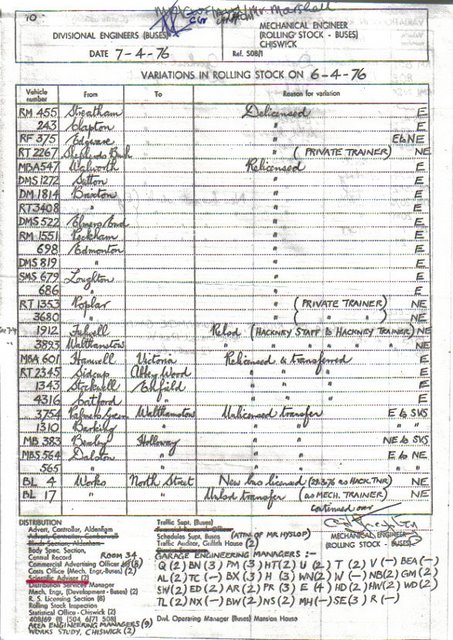 10
DIVISIONAL ENGINEERS (BUSES)
DATE 7-4-76
MECHANICAL ENGINEER
(ROLLING STOCK - BUSES)
CHISWICK
Ref. 508/1
VARIATIONS IN ROLLING STOCK ON 6-4-76
Vehicle number From To Reason for variation
RM 455 Streatham Delicensed E
243 Clapton " E
RF 375 Edgware " E to NE
RT 2267 Shepherds Bush " (PRIVATE TRAINER) NE
MBA 547 Walworth Relicensed E
DMS 1272 Sutton " E
DM 1814 Brixton " E
RT 3408 " " E
DMS 522 Elmers End " E
RM 1551 Peckham " E
698 Edmonton " E
DMS 819 " " E
SMS 679 Loughton " E
686 " " E
RT 1353 Poplar " (PRIVATE TRAINER) NE
3680 " " ( " " ) NE
1912 Fulwell Relcd (HACKNEY STAFF to HACKNEY TRAINER) NE
3893 Walthamstow " " " " " NE
MBA 601 Hanwell Victoria Relicensed & transferred E
RT 2345 Sidcup Abbey Wood " " " E
1343 Stockwell Enfield " " " E
4316 Catford " " " " E
3754 Palmers Green Walthamstow Unlicensed transfer E to SKS
1310 Barking " " " " " "
MB 383 Bexley Holloway " " NE to SKS
MBS 564 Dalston " " " E to NE
565 " " " " "
BL 4 Works North Street New bus licensed (29.3.76 as HACK.TNR) NE
BL 17 " " Unlcd transfer (as MECH. TRAINER) NE
continued over
MECHANICAL ENGINEER
(ROLLING STOCK - BUSES)
DISTRIBUTION
Advert, Controller, Aldenham
Body Spec. Section,
Central Record ROOM 34
Commercial Advertising Officer
Costs Office (Mech. Engr.-Buses) (2)
Scientific Adviser (2)
Distribution Services Manager
Mech. Engr, (Development - Buses)
R. S. Licensing Section (8)
Rolling Stock Inspection
Statistical Office - Chiswick (2)
AREA ENGINEERING MANAGERS (9)
WORKS STUDY, CHISWICK (2)
Traffic Supt. (Buses)
Schedules Supt. Buses (ATTN OF MR HYSLOP)
Traffic Auditor, Griffith House (2)
GARAGE ENGINEERING MANAGERS :-
Q (2) BN (3) PM (3) HT (2) U (2) T (2) V (-) BEA (-)
AL (2) TC (-) BX (3) H (3) WN (2) W (-) NB (2) GM (2)
SW (2) ED (2) AR (2) PR (3) E (4) HD (2) HW (2) WD (2)
TL (2) NX (-) BW (2) NS (2) MH (-) SE (3) R (-)
Dvl. Operating Manager (Buses) Mansion House